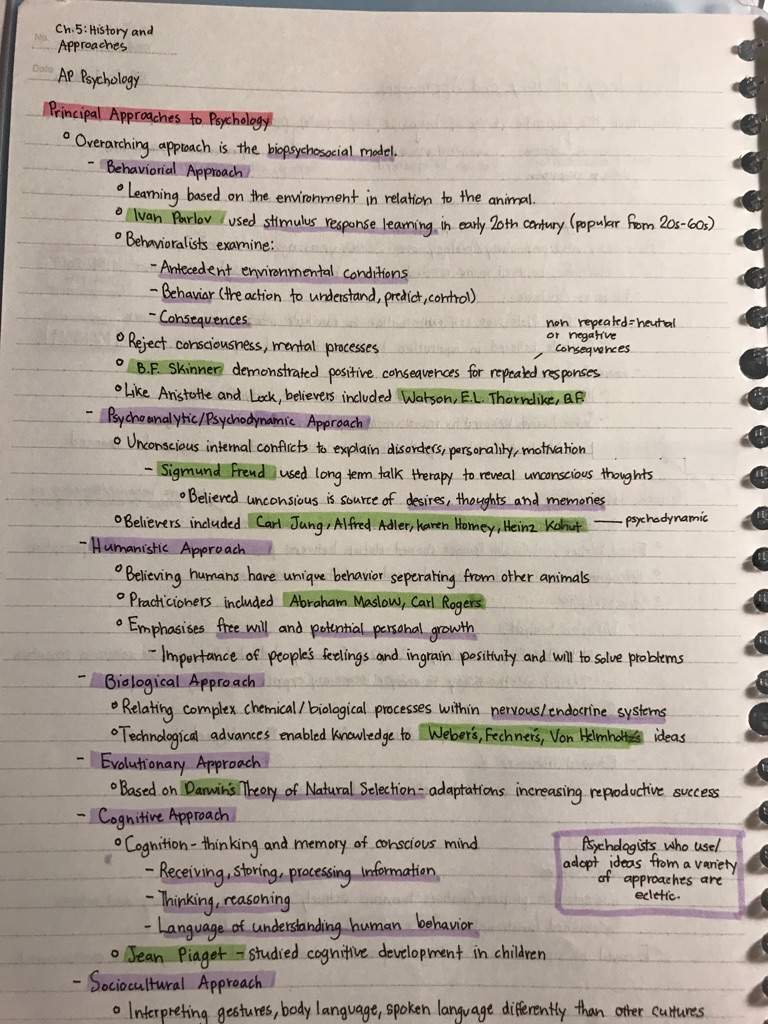 No.
Ch.5: History and
Approaches
Date
AP Psychology
Principal Approaches to Psychology
° Overarching approach is the biopsychosocial model.
- Behaviorial Approach
° Learning based on the environment in relation to the animal.
° Ivan Parlov used stimulus response learning in early 20th century (popular from 20s-60s)
° Behavioralists examine:
- Antecedent environmental conditions
- Behavior (the action to understand, predict, control)
- Consequences
non repeated=neutral
or negative
consequences
° Reject consciousness, mental processes
° B.F. Skinner demonstrated positive consequences for repeated responses
° Like Aristotle and Lock, believers included Watson, E.L. Thorndike, B.F.
- Psychoanalytic/Psychodynamic Approach
° Unconscious internal conflicts to explain disorders, personality, motivation
- Sigmund Freud used long term talk therapy to reveal unconscious thoughts
° Believed unconsious is source of desires, thoughts and memories
° Believers included Carl Jung, Alfred Adler, Karen Horney, Heinz Kohut — psychodynamic
- Humanistic Approach
° Believing humans have unique behavior seperating from other animals
° Practicioners included Abraham Maslow, Carl Rogers
° Emphasises free will and potential personal growth
- Importance of people's feelings and ingrain positivity and will to solve problems
- Biological Approach
° Relating complex chemical/biological processes within nervous/endocrine systems
° Technological advances enabled knowledge to Weber's, Fechner's, Von Helmholtz's ideas
- Evolutionary Approach
° Based on Darwin's Theory of Natural Selection - adaptations increasing reproductive success
- Cognitive Approach
° Cognition - thinking and memory of conscious mind
- Receiving, storing, processing information
- Thinking, reasoning
- Language of understanding human behavior
° Jean Piaget - studied cognitive development in children
Psychologists who use/
adopt ideas from a variety
of approaches are
ecletic.
- Sociocultural Approach
° Interpreting gestures, body language, spoken language differently than other cultures